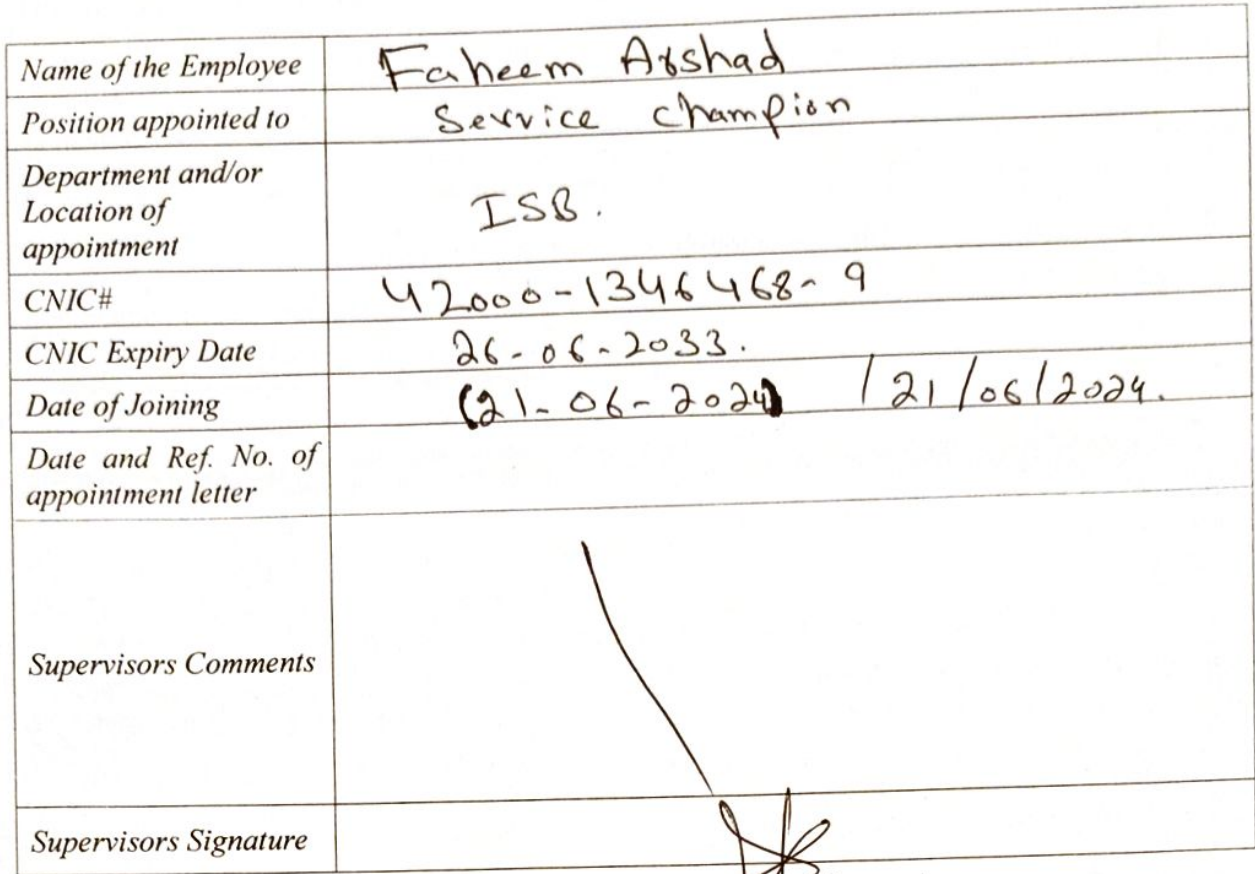 Name of the Employee Faheem Arshad
Position appointed to Service Champion
Department and/or
Location of
appointment
ISB.
CNIC# 42000-1346468-9
CNIC Expiry Date 26-06-2033.
Date of Joining (21-06-2024) /21/06/2024.
Date and Ref. No. of
appointment letter
Supervisors Comments
Supervisors Signature